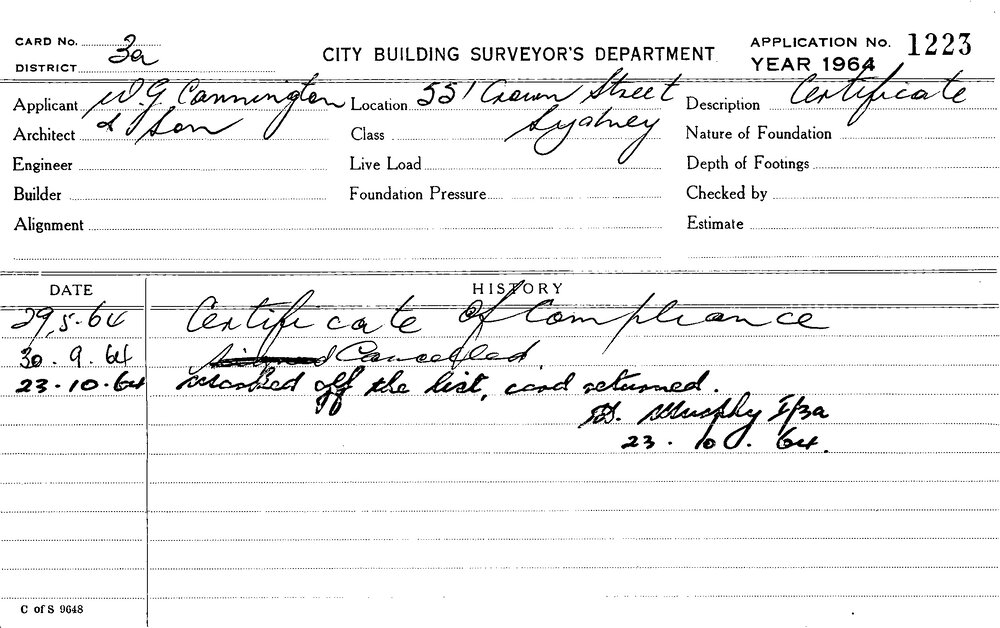 CARD No. 3a
DISTRICT
CITY BUILDING SURVEYOR'S DEPARTMENT
APPLICATION No. 1223
YEAR 1964
Applicant W. G. Cannington Location 551 Crown Street Description Certificate
Architect & Son Class Sydney Nature of Foundation
Engineer Live Load Depth of Footings
Builder Foundation Pressure Checked by
Alignment Estimate
DATE HISTORY
29.5.64 Certificate of Compliance
30.9.64 Cancelled
23.10.64 marked off the list, card returned.
Murphy I/3a
23.10.64.
C of S 9648